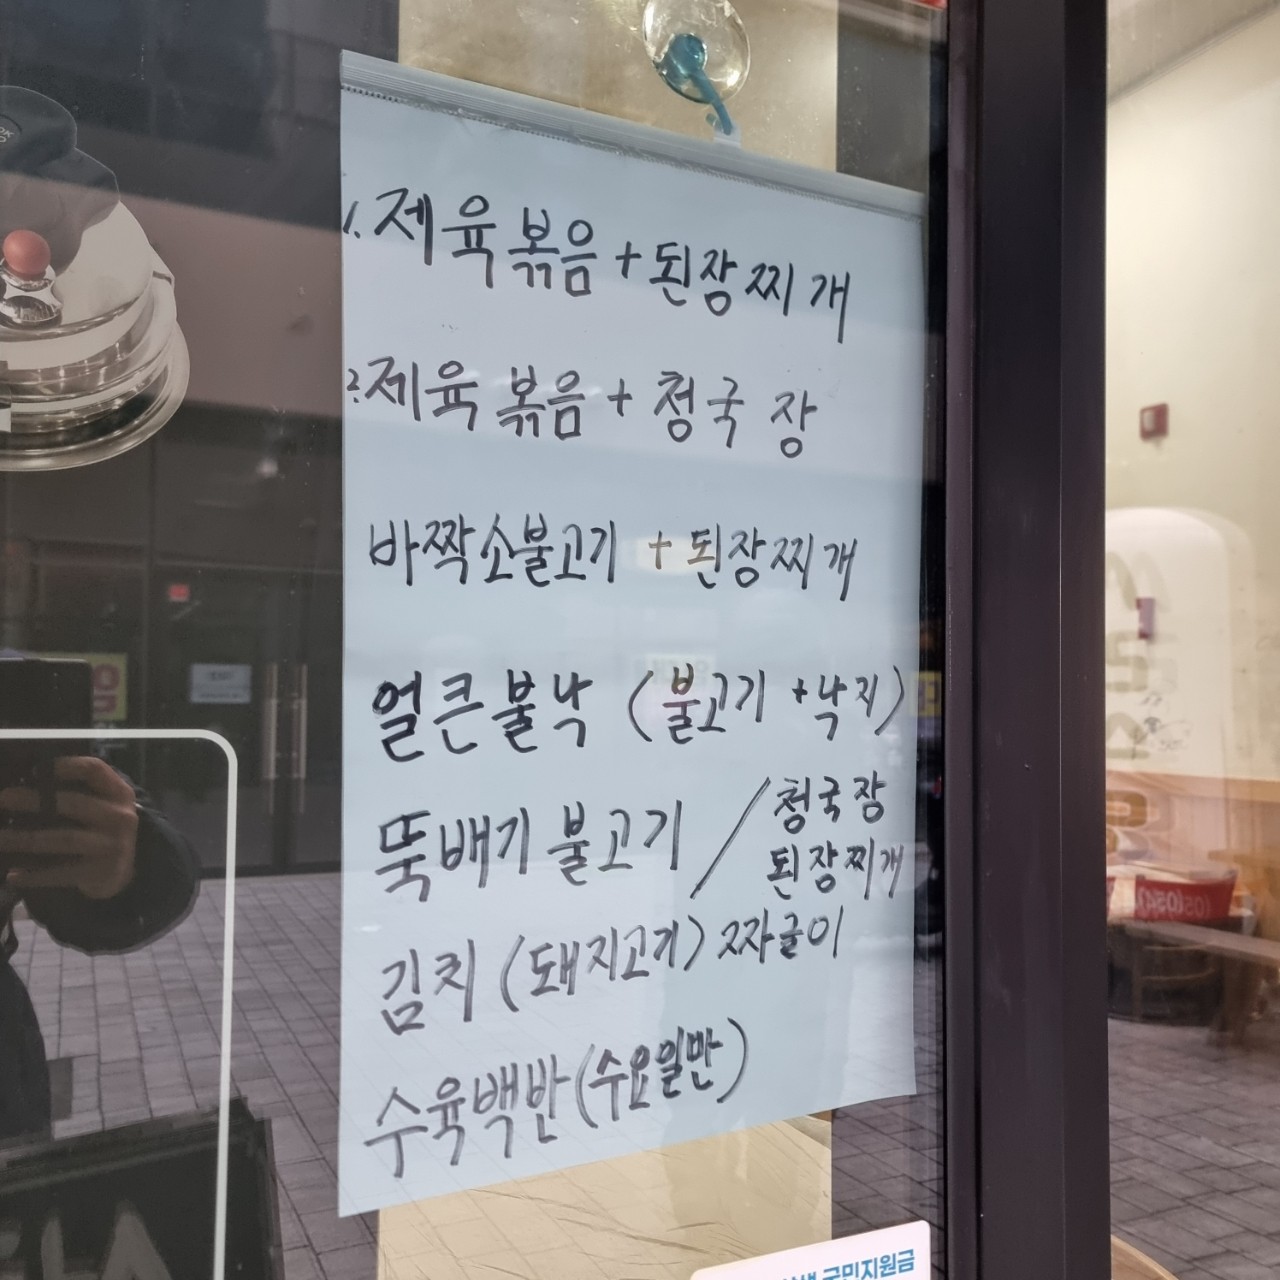 1. 제육볶음 + 된장찌개
2. 제육볶음 + 청국장
바짝소불고기 + 된장찌개
얼큰불낙 (불고기 + 낙지)
뚝배기 불고기 / 청국장
된장찌개
김치 (돼지고기) 짜글이
수육백반 (수요일만)
국민지원금